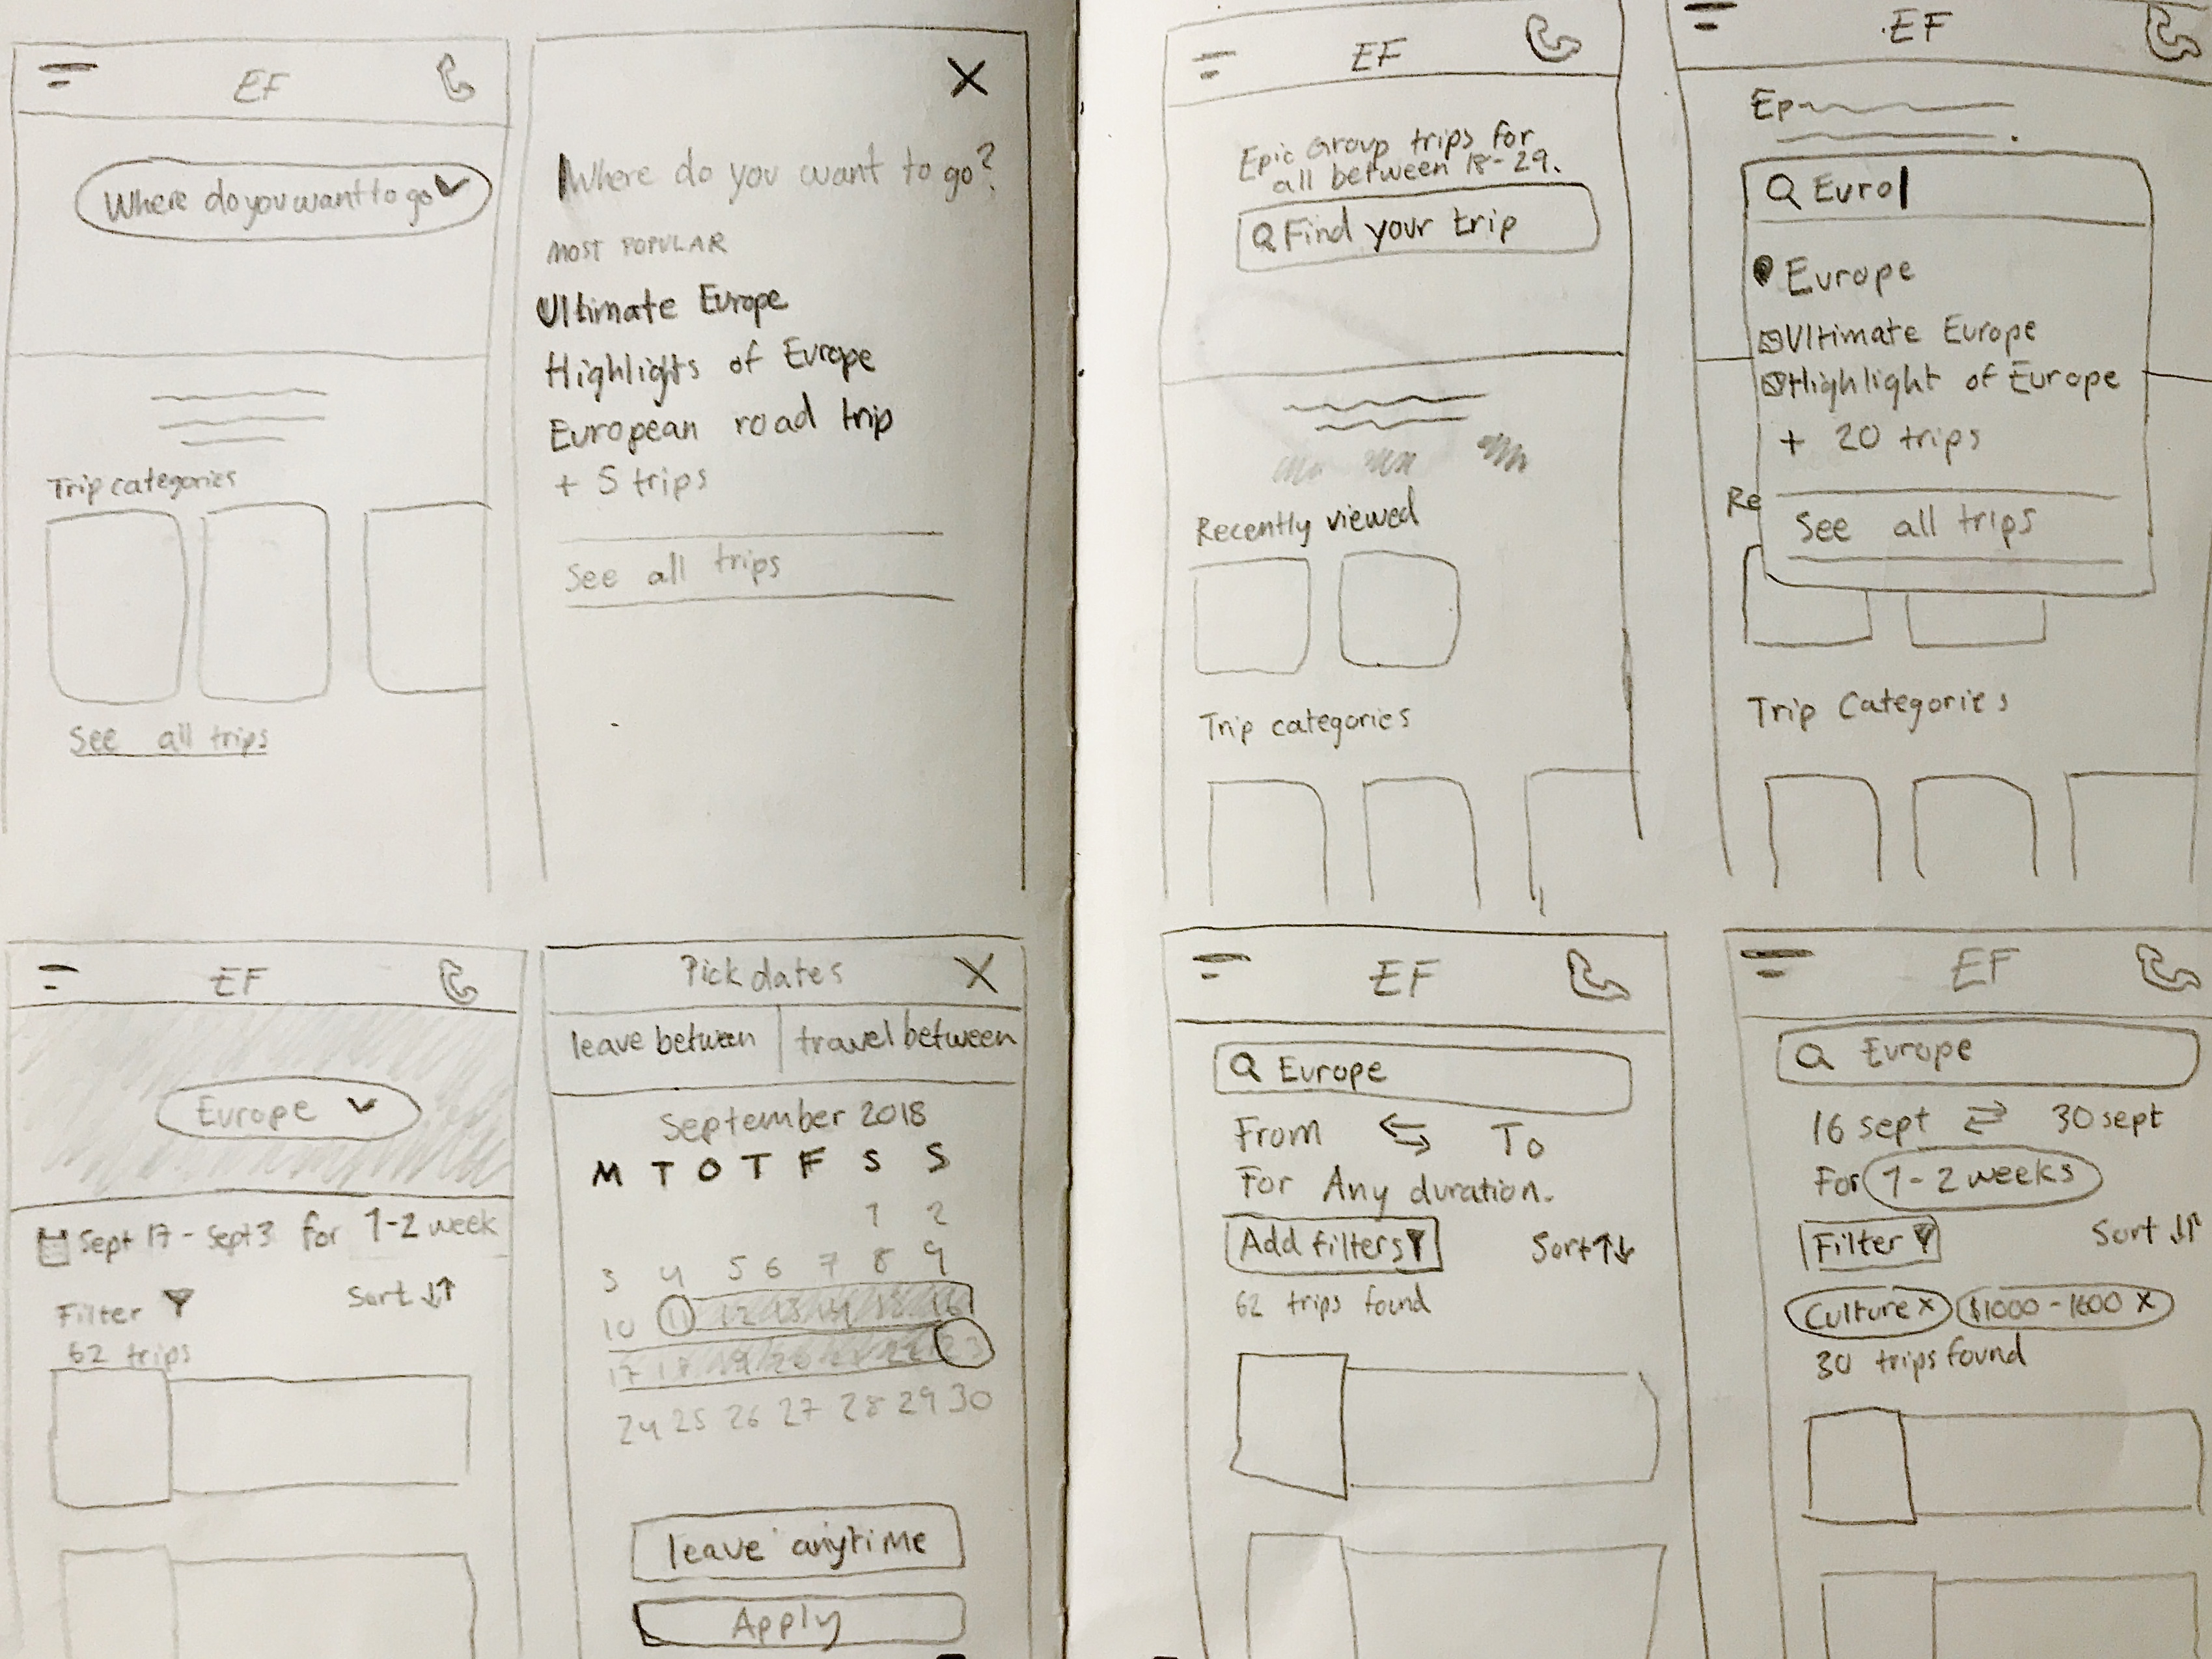 EF
Where do you want to go
Trip categories
See all trips
X
Where do you want to go?
MOST POPULAR
Ultimate Europe
Highlights of Europe
European road trip
+ 5 trips
See all trips
EF
Europe
Sept 17 - Sept 3 for 1-2 week
Filter
Sort
62 trips
Pick dates X
leave between travel between
September 2018
M T O T F S S
1 2
3 4 5 6 7 8 9
10 11 12 13 14 15 16
17 18 19 20 21 22 23
24 25 26 27 28 29 30
leave anytime
Apply
EF
Epic Group trips for
all between 18-29.
Find your trip
Recently viewed
Trip categories
EF
Ep
Euro
Europe
Ultimate Europe
Highlight of Europe
+ 20 trips
See all trips
Re
Trip Categories
EF
Europe
From To
For Any duration.
Add filters Sort
62 trips found
EF
Europe
16 sept 30 sept
For 1-2 weeks
Filter Sort
Culture x $1000-1600 x
30 trips found